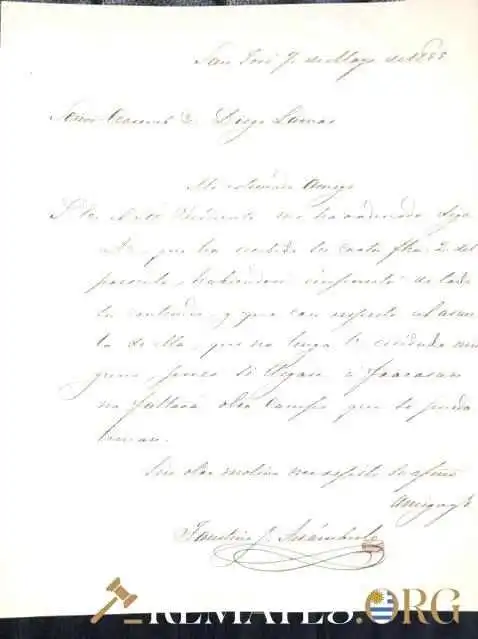 San José 7 de Mayo de 1855
Señor General D. Diego Lamas
Mi estimado Amigo
me ha ordenado diga
a V. que ha recibido su carta fha. 2 del
presente, habiendose impuesto de todo
su contenido, y que con respecto al asun
to de ella, que no tenga V. cuidado nin
guno, pues si llegase a fracasar
no faltará otro campo que se pueda
Sin otro motivo me repito su afmo
amigo
Faustino J.
REMATES.ORG